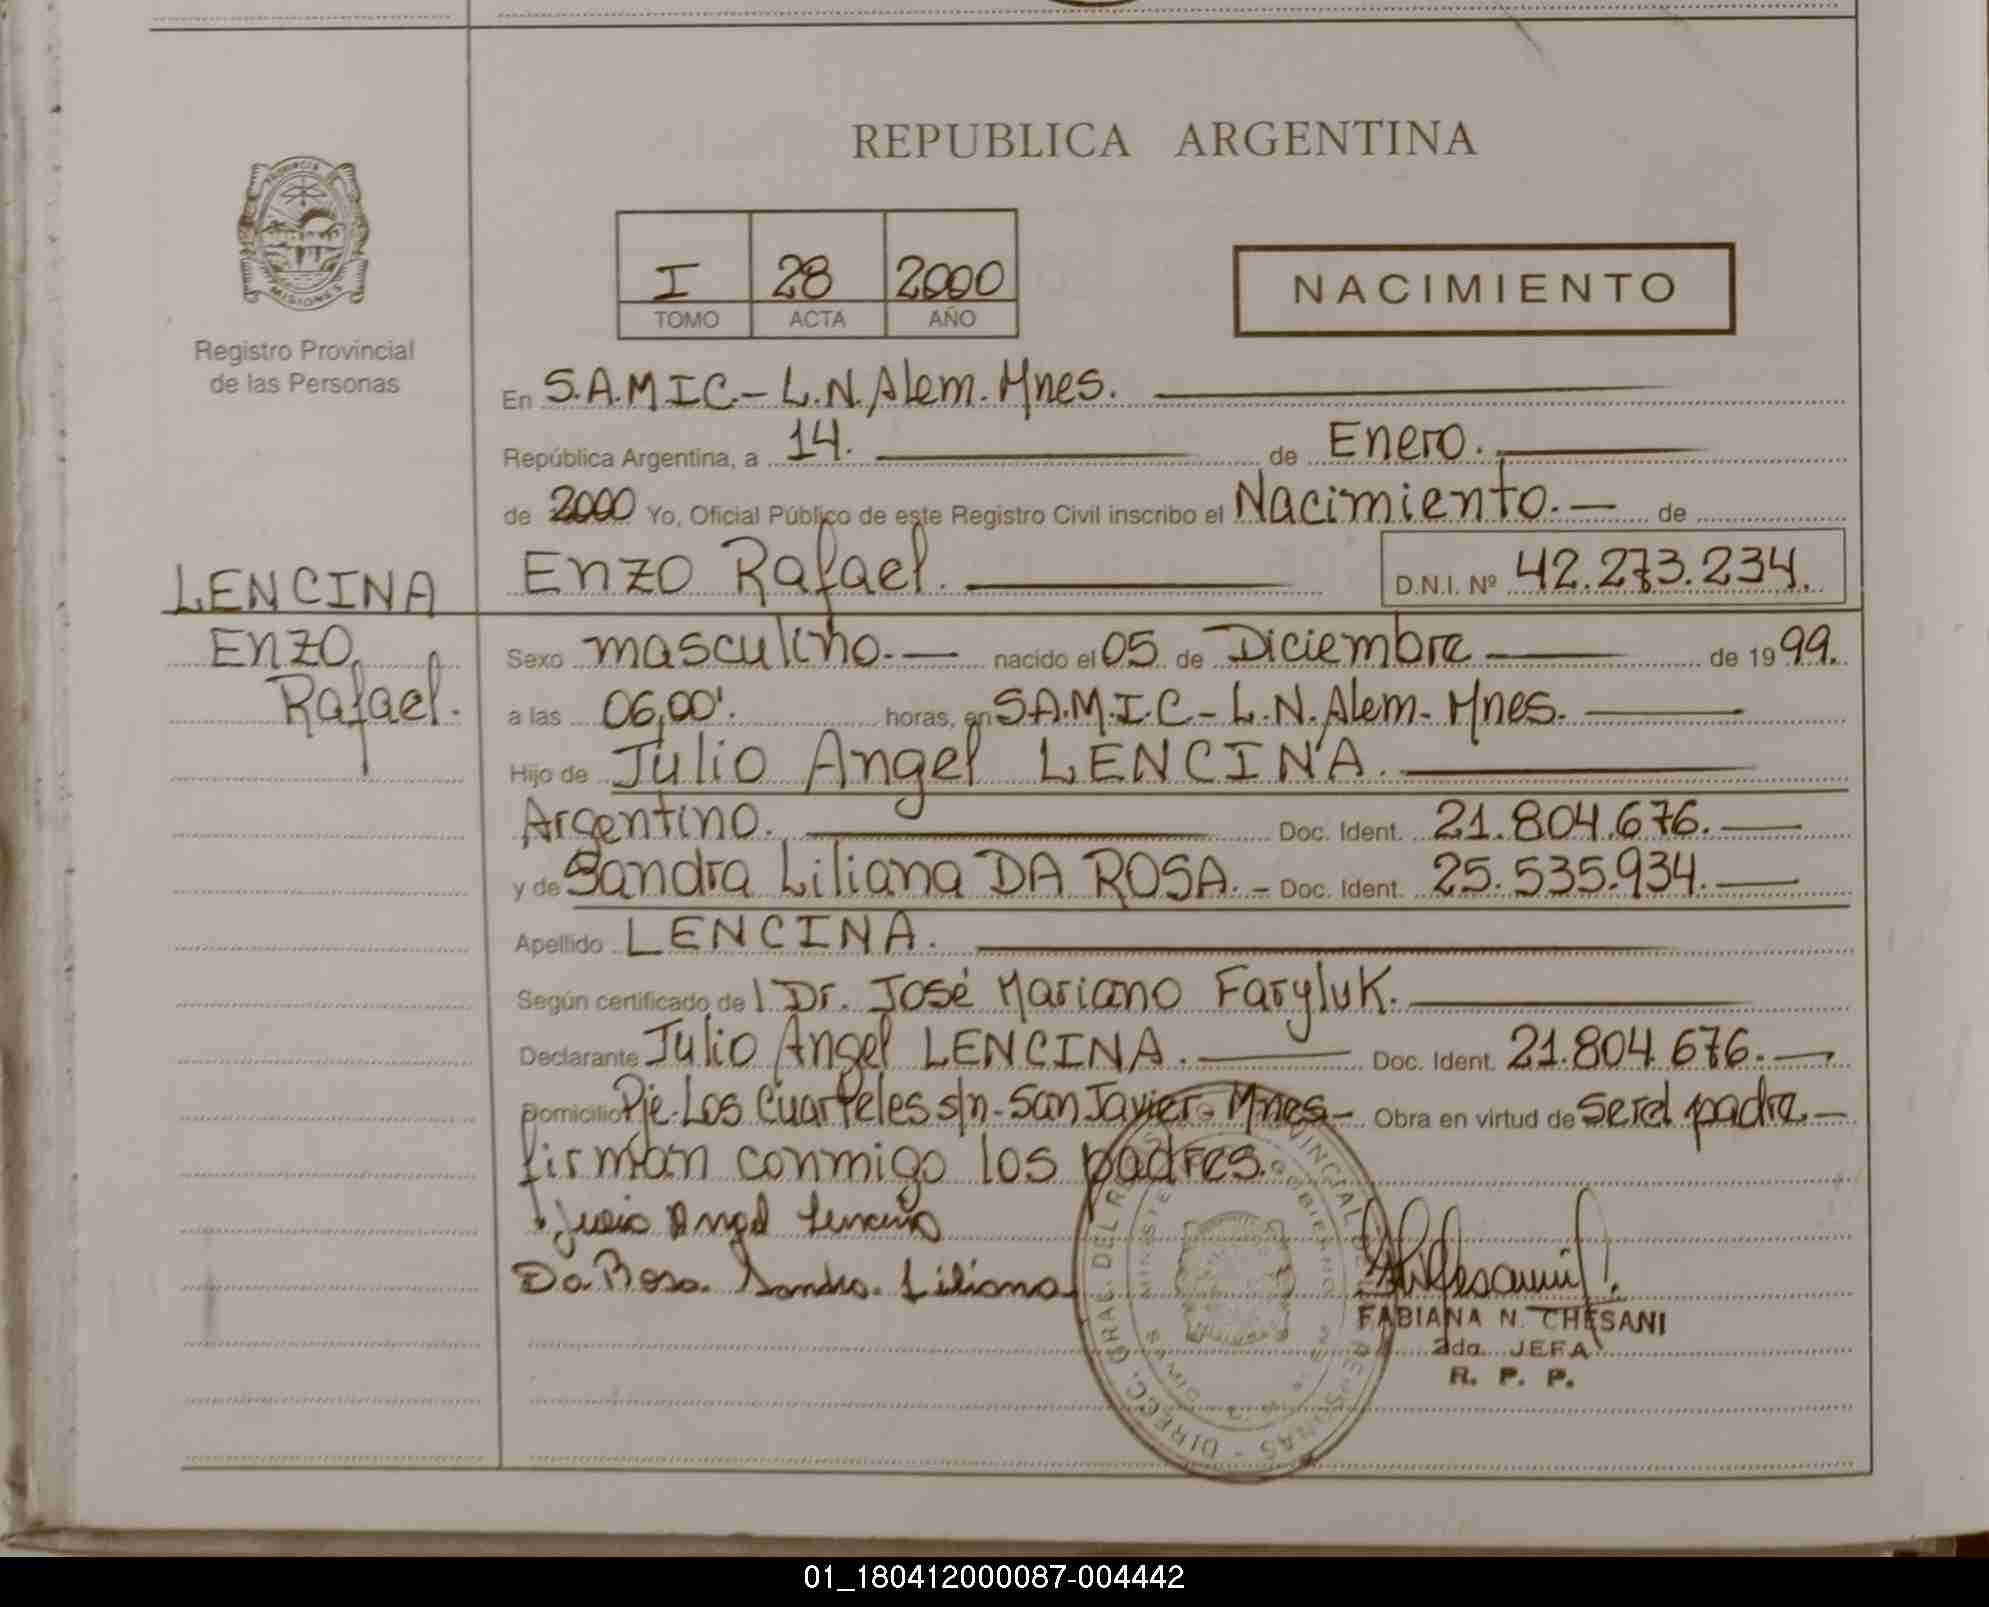 REPUBLICA ARGENTINA
PROVINCIA DE MISIONES
Registro Provincial
de las Personas
I 28 2000
TOMO ACTA AÑO
NACIMIENTO
En S.A.M.I.C.- L.N. Alem. Mnes.
República Argentina, a 14. de Enero.
de 2000 Yo, Oficial Público de este Registro Civil inscribo el Nacimiento. - de
Enzo Rafael. D.N.I. Nº 42.273.234.
LENCINA
Enzo
Rafael.
Sexo masculino. - nacido el 05 de Diciembre de 1999.
a las 06,00'. horas, en S.A.M.I.C - L.N. Alem - Mnes.
Hijo de Julio Angel LENCINA.
Argentino. Doc. Ident. 21.804.676.
y de Sandra Liliana DA ROSA. - Doc. Ident. 25.535.934.
Apellido LENCINA.
Según certificado de l Dr. José Mariano Faryluk.
Declarante Julio Angel LENCINA. Doc. Ident. 21.804.676.
Domicilio Pje. Los Cuarteles s/n - San Javier - Mnes - Obra en virtud de ser el padre
firman conmigo los padres.
Julio Angel Lencina
Da Rosa Sandra Liliana
FABIANA N. CHESANI
2da. JEFA
R. P. P.
01_180412000087-004442